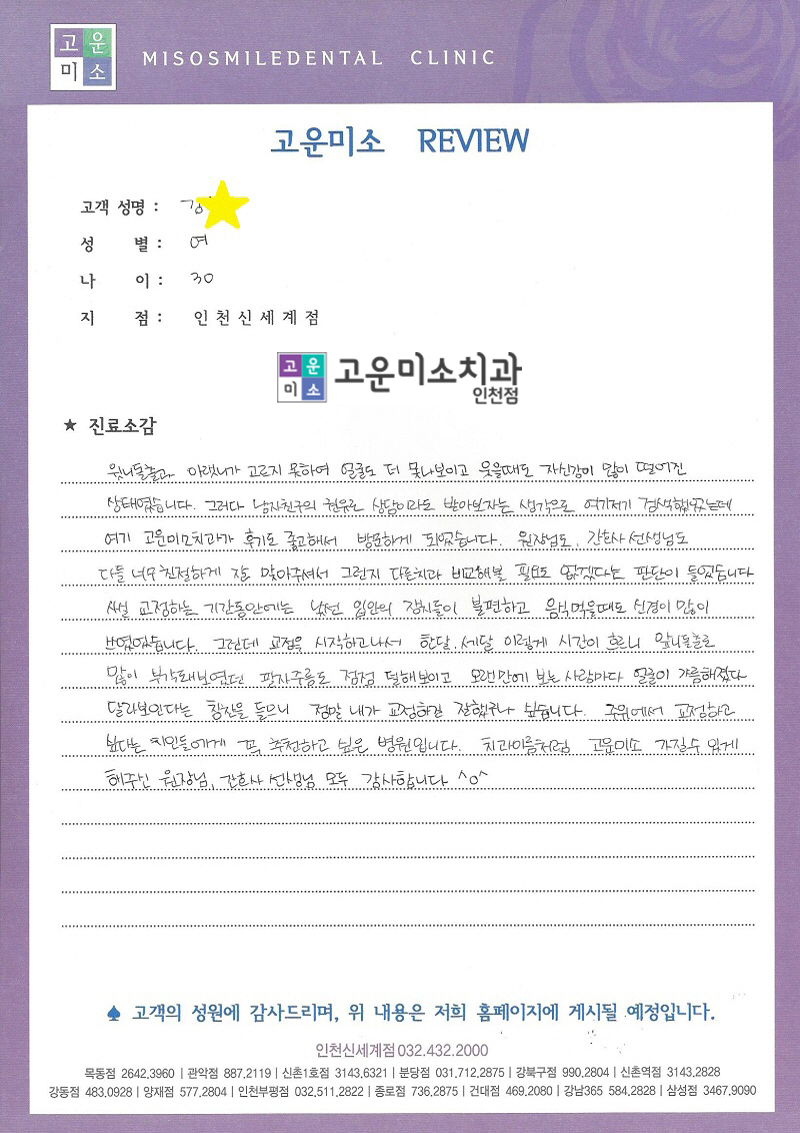 고운
미소
MISOSMILEDENTAL CLINIC
고운미소 REVIEW
고객 성명 : 김
성 별 : 여
나 이 : 30
지 점 : 인천신세계점
고운
미소
고운미소치과
인천점
★ 진료소감
윗니돌출과 아랫니가 고르지 못하여 얼굴도 더 못나보이고 웃을때도 자신감이 많이 떨어진
상태였습니다. 그러다 남자친구의 권유로 상담이라도 받아보자는 생각으로 여기저기 검색해보았는데
여기 고운미소치과가 후기도 좋고해서 방문하게 되었습니다. 원장님도, 간호사선생님도
다들 너무 친절하게 잘 맞아주셔서 그런지 다른치과 비교해볼 필요도 없겠다는 판단이 들었습니다
사실 교정하는 기간동안에는 낯선 입안의 장치들이 불편하고 음식먹을때도 신경이 많이
쓰였었습니다. 그런데 교정을 시작하고나서 한달, 세달 이렇게 시간이 흐르니 앞니돌출로
많이 부각돼보였던 팔자주름도 점점 덜해보이고 오랜만에 보는 사람마다 얼굴이 갸름해졌다
달라보인다는 칭찬을 들으니 정말 내가 교정하길 잘했구나 싶습니다. 주위에서 교정하고
싶다는 지인들에게 꼭 추천하고 싶은 병원입니다. 치과이름처럼 고운미소 가질수 있게
해주신 원장님, 간호사 선생님 모두 감사합니다 ^o^
♠ 고객의 성원에 감사드리며, 위 내용은 저희 홈페이지에 게시될 예정입니다.
인천신세계점 032.432.2000
목동점 2642.3960 | 관악점 887.2119 | 신촌1호점 3143.6321 | 분당점 031.712.2875 | 강북구점 990.2804 | 신촌역점 3143.2828
강동점 483.0928 | 양재점 577.2804 | 인천부평점 032.511.2822 | 종로점 736.2875 | 건대점 469.2080 | 강남365 584.2828 | 삼성점 3467.9090